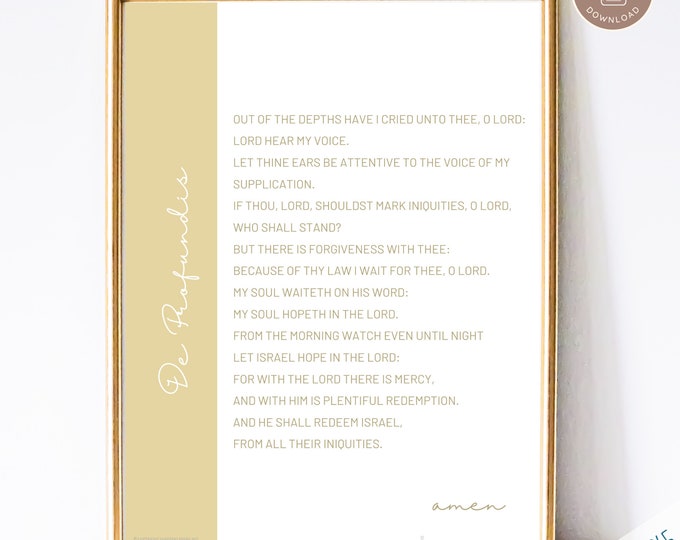 DOWNLOAD
De Profundis
OUT OF THE DEPTHS HAVE I CRIED UNTO THEE, O LORD:
LORD HEAR MY VOICE.
LET THINE EARS BE ATTENTIVE TO THE VOICE OF MY
SUPPLICATION.
IF THOU, LORD, SHOULDST MARK INIQUITIES, O LORD,
WHO SHALL STAND?
BUT THERE IS FORGIVENESS WITH THEE:
BECAUSE OF THY LAW I WAIT FOR THEE, O LORD.
MY SOUL WAITETH ON HIS WORD:
MY SOUL HOPETH IN THE LORD.
FROM THE MORNING WATCH EVEN UNTIL NIGHT
LET ISRAEL HOPE IN THE LORD:
FOR WITH THE LORD THERE IS MERCY,
AND WITH HIM IS PLENTIFUL REDEMPTION.
AND HE SHALL REDEEM ISRAEL,
FROM ALL THEIR INIQUITIES.
amen